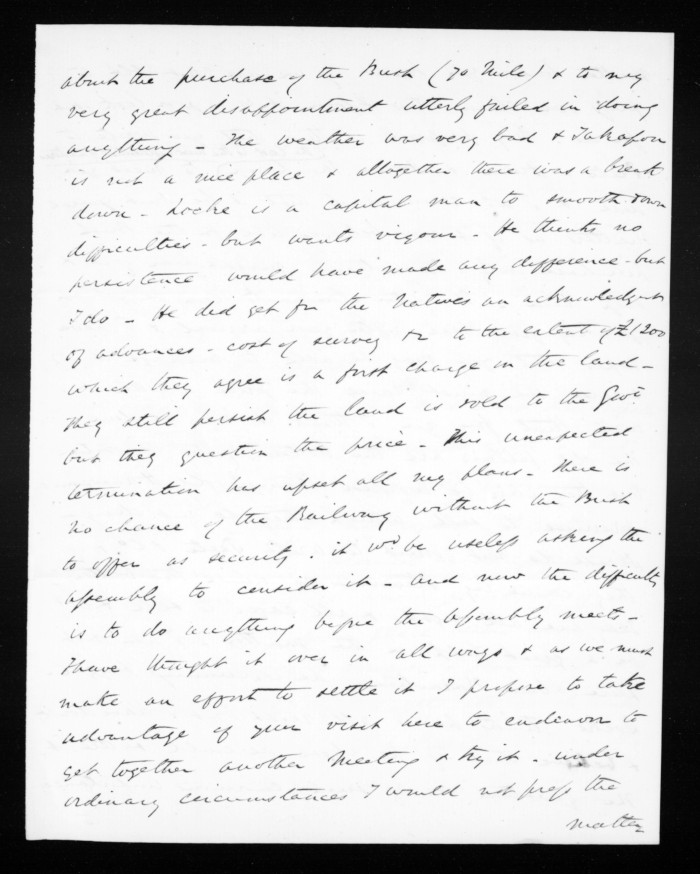 about the purchase of the Bush (70 Mile) & to my
very great disappointment utterly failed in doing
anything - The weather was very bad & Takapau
is not a nice place & altogether there was a break
down - Locke is a capital man to smooth down
difficulties - but wants vigour - He thinks no
persistence would have made any difference - but
I do - He did get from the Natives an acknowledgmt
of advances - cost of survey &c to the extent of £1200
which they agree is a first charge on the land -
They still persist the land is sold to the Govt
but they question the price - This unexpected
termination has upset all my plans - There is
no chance of the Railway without the Bush
to offer as security . it wd be useless asking the
assembly to consider it - and now the difficulty
is to do anything before the Assembly meets -
I have thought it over in all ways & as we must
make an effort to settle it I propose to take
advantage of your visit here to endeavor to
get together another Meeting & try it - under
ordinary circumstances I would not press the
matter